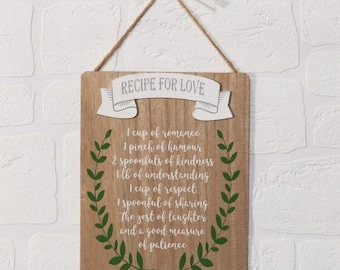 RECIPE FOR LOVE
1 cup of romance
1 pinch of humour
2 spoonfuls of kindness
1 lb of understanding
1 cup of respect
1 spoonful of sharing
The zest of laughter
and a good measure
of patience